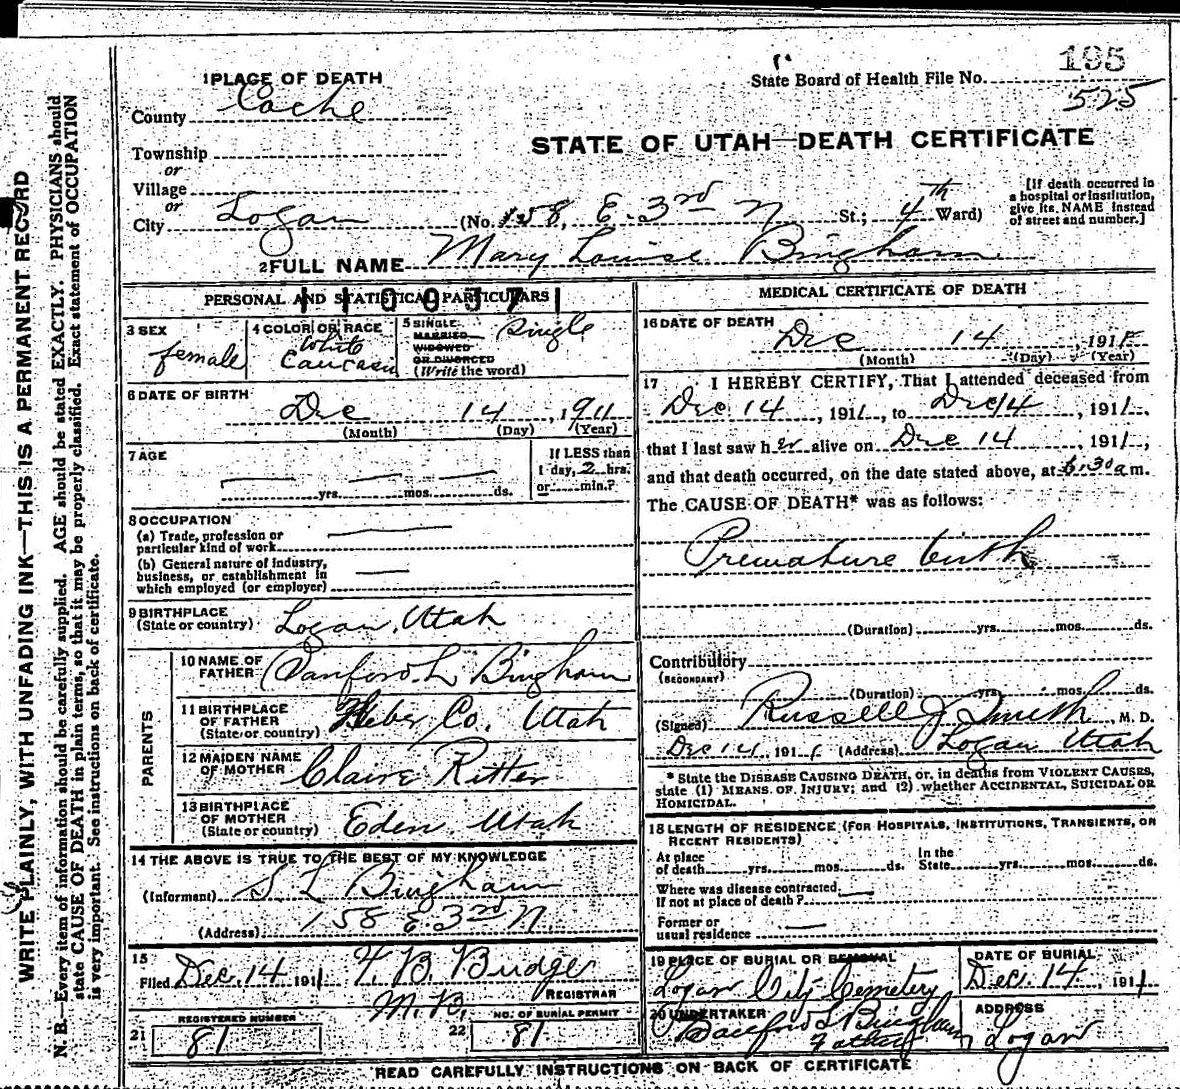 195
State Board of Health File No. 525
1 PLACE OF DEATH
County Cache
STATE OF UTAH—DEATH CERTIFICATE
Township
or
Village
or
City Logan (No. 158, E. 3rd N St.; 4th Ward)
[If death occurred in
a hospital or institution,
give its NAME instead
of street and number.]
2 FULL NAME Mary Louise Bingham
PERSONAL AND STATISTICAL PARTICULARS
3 SEX
female
4 COLOR OR RACE
White
Caucasian
5 SINGLE
MARRIED
WIDOWED
OR DIVORCED
(Write the word)
Single
6 DATE OF BIRTH
Dec 14, 1911
(Month) (Day) (Year)
7 AGE
yrs. mos. ds.
If LESS than
1 day, 2 hrs.
or min.?
8 OCCUPATION
(a) Trade, profession or
particular kind of work
(b) General nature of industry,
business, or establishment in
which employed (or employer)
9 BIRTHPLACE
(State or country) Logan, Utah
PARENTS
10 NAME OF
FATHER Sanford L Bingham
11 BIRTHPLACE
OF FATHER
(State or country) Weber Co. Utah
12 MAIDEN NAME
OF MOTHER Claire Ritter
13 BIRTHPLACE
OF MOTHER
(State or country) Eden, Utah
14 THE ABOVE IS TRUE TO THE BEST OF MY KNOWLEDGE
(Informant) S L Bingham
(Address) 158 E. 3rd N.
15
Filed Dec. 14 1911
B. Budge
M.D. REGISTRAR
21 REGISTERED NUMBER
81
22 NO. OF BURIAL PERMIT
81
MEDICAL CERTIFICATE OF DEATH
16 DATE OF DEATH
Dec 14, 1911
(Month) (Day) (Year)
17 I HEREBY CERTIFY, That I attended deceased from
Dec. 14, 1911, to Dec 14, 1911,
that I last saw her alive on Dec 14, 1911,
and that death occurred, on the date stated above, at 6:30 a m.
The CAUSE OF DEATH* was as follows:
Premature birth
(Duration) yrs. mos. ds.
Contributory
(SECONDARY)
(Duration) yrs. mos. ds.
(Signed) Russell J Smith, M. D.
Dec 14, 1911 (Address) Logan Utah
* State the DISEASE CAUSING DEATH, or, in deaths from VIOLENT CAUSES,
state (1) MEANS OF INJURY; and (2) whether ACCIDENTAL, SUICIDAL OR
HOMICIDAL.
18 LENGTH OF RESIDENCE (FOR HOSPITALS, INSTITUTIONS, TRANSIENTS, OR
RECENT RESIDENTS)
At place
of death yrs. mos. ds.
In the
State yrs. mos. ds.
Where was disease contracted,
If not at place of death?
Former or
usual residence
19 PLACE OF BURIAL OR REMOVAL
Logan City Cemetery
DATE OF BURIAL
Dec. 14, 1911
20 UNDERTAKER
Sanford L Bingham
Father
ADDRESS
Logan
READ CAREFULLY INSTRUCTIONS ON BACK OF CERTIFICATE
WRITE PLAINLY, WITH UNFADING INK—THIS IS A PERMANENT RECORD
N. B.—Every item of information should be carefully supplied. AGE should be stated EXACTLY. PHYSICIANS should
state CAUSE OF DEATH in plain terms, so that it may be properly classified. Exact statement of OCCUPATION
is very important. See instructions on back of certificate.